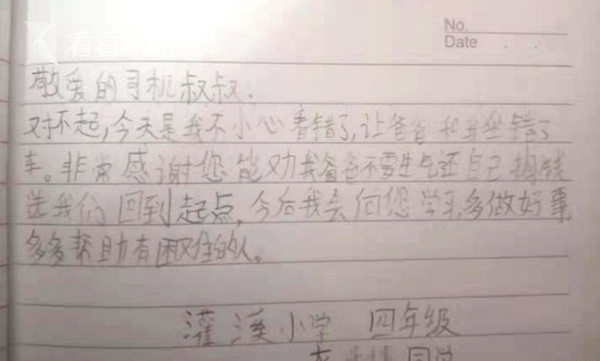 看看
No.
Date
敬爱的司机叔叔:
对不起,今天是我不小心看错了,让爸爸和我坐错了
车。非常感谢您能劝我爸爸不要生气还自己掏钱
送我们回到起点,今后我会向您学习,多做好事
多多帮助有困难的人。
灌溪小学 四年级
同学